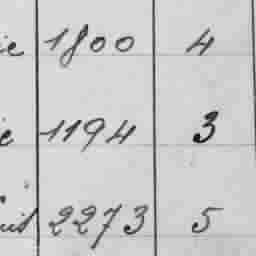 ie 1800 4
ie 1194 3
2273 5